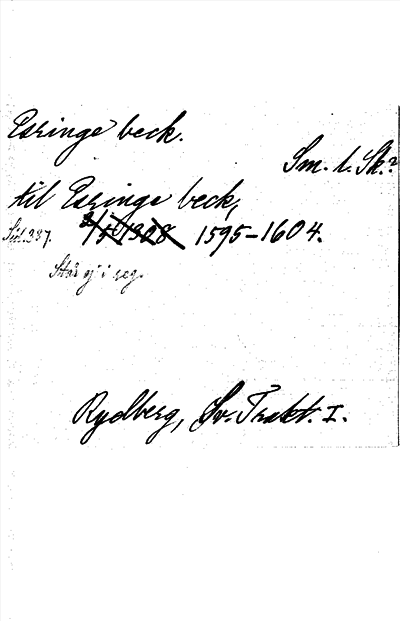 Esringe beck.
Sm. l. Sk.?
til Esringe beck,
Sid. 387. 1595-1604.
Står ej i reg.
Rydberg, Sv. Trakt. I.